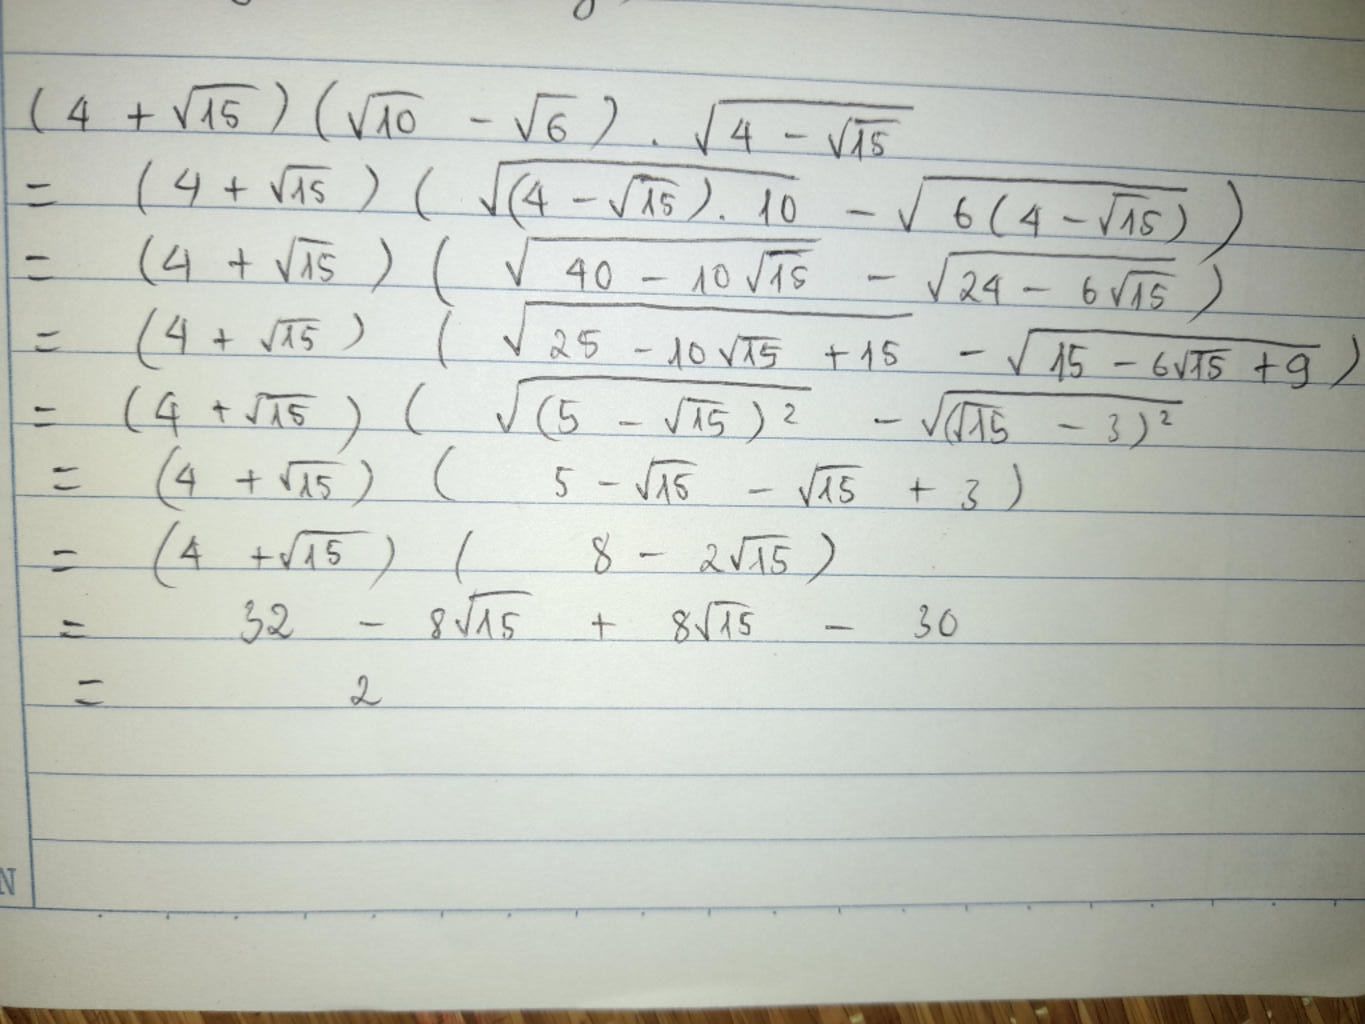 (4 + √15)(√10 - √6) . √(4 - √15)
= (4 + √15) ( √((4 - √15) . 10) - √(6(4 - √15)) )
= (4 + √15) ( √(40 - 10√15) - √(24 - 6√15) )
= (4 + √15) ( √(25 - 10√15 + 15) - √(15 - 6√15 + 9) )
= (4 + √15) ( √((5 - √15)²) - √((√15 - 3)²)
= (4 + √15) ( 5 - √15 - √15 + 3 )
= (4 + √15) ( 8 - 2√15 )
= 32 - 8√15 + 8√15 - 30
= 2
N